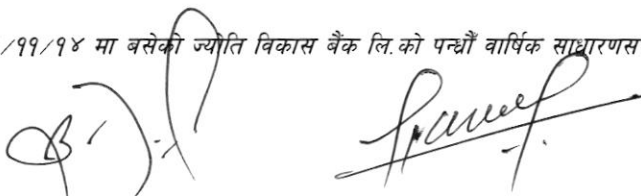 /११/१४ मा बसेको ज्योति विकास बैंक लि.को पन्ध्रौँ वार्षिक साधारणस